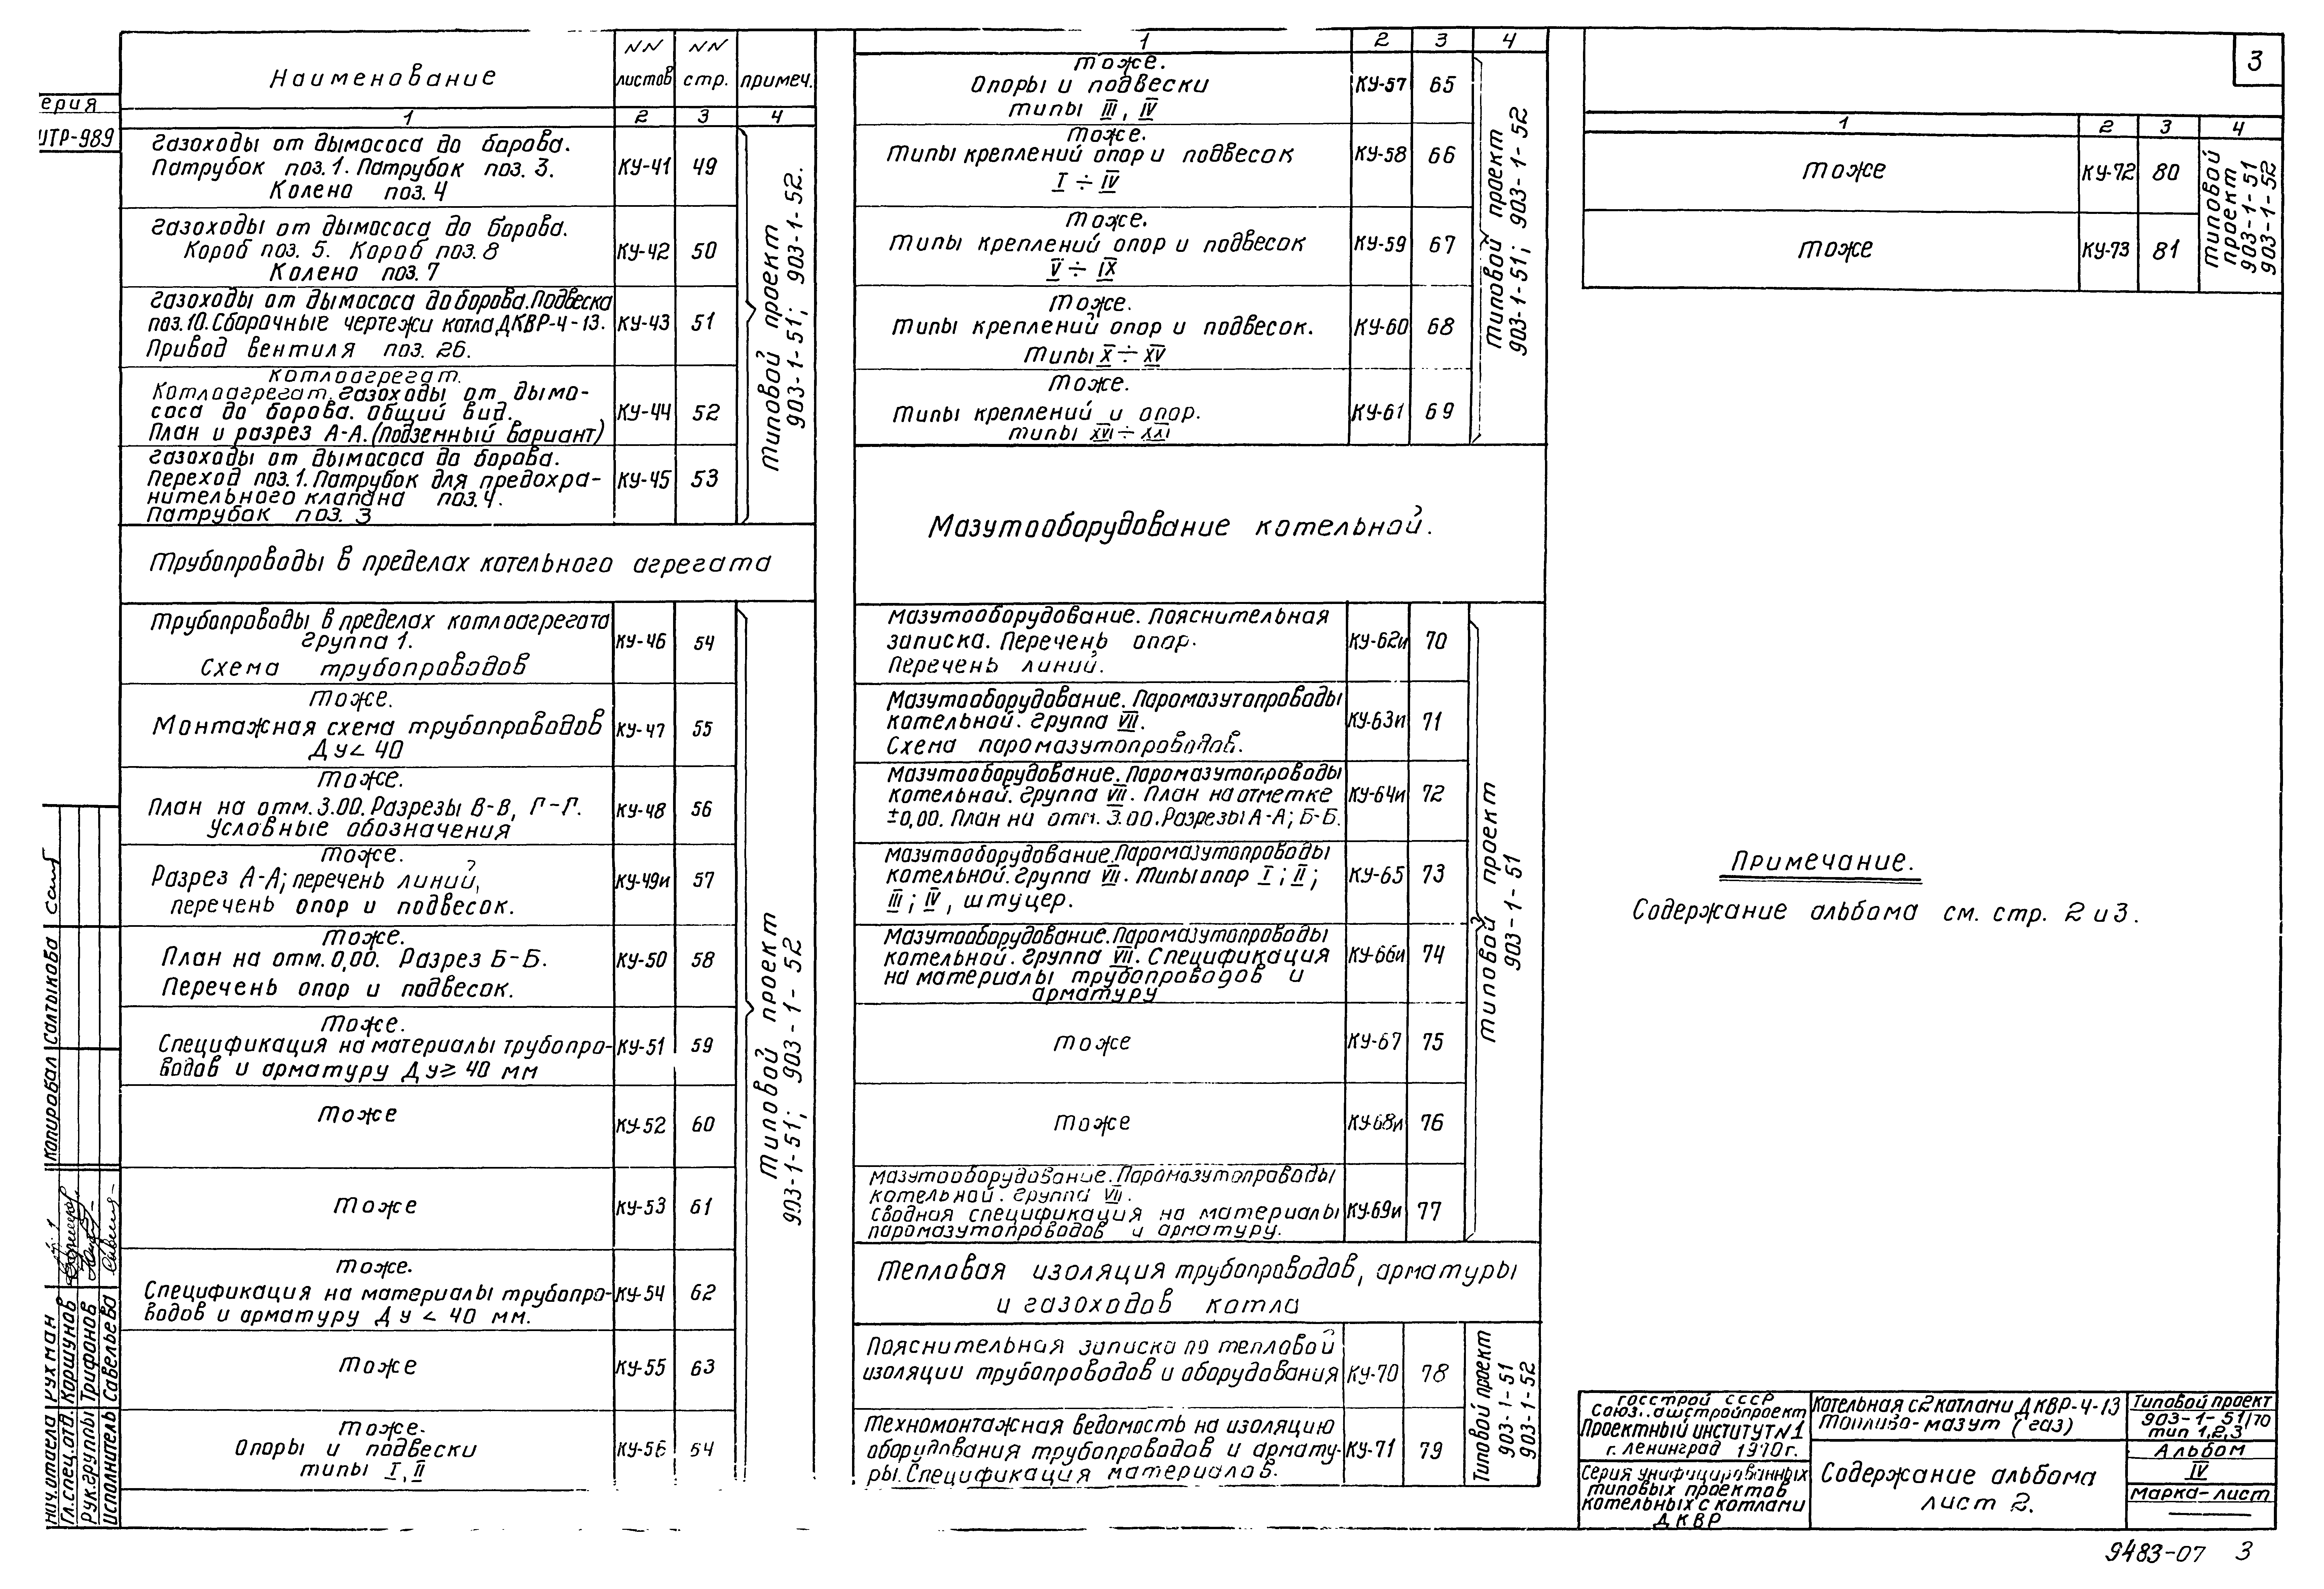 3
ерия
ИТР-989
Наименование
NN листов
NN стр.
примеч.
1 2 3 4
Газоходы от дымососа до борова.
Патрубок поз.1. Патрубок поз.3.
Колено поз.4
КУ-41 49
Газоходы от дымососа до борова.
Короб поз. 5. Короб поз. 8
Колено поз.7
КУ-42 50
Газоходы от дымососа до борова. Подвеска
поз.10. Сборочные чертежи котла ДКВР-4-13.
Привод вентиля поз. 26.
КУ-43 51
Котлоагрегат.
Котлоагрегат. Газоходы от дымо-
соса до борова. Общий вид.
План и разрез А-А. (Подземный вариант)
КУ-44 52
Газоходы от дымососа до борова.
Переход поз.1. Патрубок для предохра-
нительного клапана поз.4.
Патрубок поз. 3
КУ-45 53
Типовой проект
903-1-51; 903-1-52.
Трубопроводы в пределах котельного агрегата
Трубопроводы в пределах котлоагрегата
Группа 1.
Схема трубопроводов
КУ-46 54
Тоже.
Монтажная схема трубопроводов
Ду < 40
КУ-47 55
Тоже.
План на отм. 3.00. Разрезы В-В, Г-Г.
Условные обозначения
КУ-48 56
Тоже.
Разрез А-А; перечень линий,
перечень опор и подвесок.
КУ-49и 57
Тоже.
План на отм. 0,00. Разрез Б-Б.
Перечень опор и подвесок.
КУ-50 58
Тоже.
Спецификация на материалы трубопро-
водов и арматуру Ду ≥ 40 мм
КУ-51 59
Тоже
КУ-52 60
Тоже
КУ-53 61
Тоже.
Спецификация на материалы трубопро-
водов и арматуру Ду < 40 мм.
КУ-54 62
Тоже
КУ-55 63
Тоже.
Опоры и подвески
типы I, II
КУ-56 54
Типовой проект
903-1-51; 903-1-52
1 2 3 4
Тоже.
Опоры и подвески
типы III, IV
КУ-57 65
Тоже.
Типы креплений опор и подвесок
I ÷ IV
КУ-58 66
Тоже.
Типы креплений опор и подвесок
V ÷ IX
КУ-59 67
Тоже.
Типы креплений опор и подвесок.
Типы X ÷ XV
КУ-60 68
Тоже.
Типы креплений и опор.
типы XVI ÷ XXI
КУ-61 69
Типовой проект
903-1-51; 903-1-52
Мазутооборудование котельной.
Мазутооборудование. Пояснительная
записка. Перечень опор.
Перечень линий.
КУ-62и 70
Мазутооборудование. Паромазутопроводы
котельной. Группа VII.
Схема паромазутопроводов.
КУ-63и 71
Мазутооборудование. Паромазутопроводы
котельной. Группа VII. План на отметке
±0,00. План на отм. 3.00. Разрезы А-А; Б-Б.
КУ-64и 72
Мазутооборудование. Паромазутопроводы
котельной. Группа VII. Типы опор I; II;
III; IV, штуцер.
КУ-65 73
Мазутооборудование. Паромазутопроводы
котельной. Группа VII. Спецификация
на материалы трубопроводов и
арматуру
КУ-66и 74
Тоже
КУ-67 75
Тоже
КУ-68и 76
Мазутооборудование. Паромазутопроводы
котельной. Группа VII.
Сводная спецификация на материалы
паромазутопроводов и арматуру.
КУ-69и 77
Типовой проект
903-1-51
Тепловая изоляция трубопроводов, арматуры
и газоходов котла
Пояснительная записка по тепловой
изоляции трубопроводов и оборудования
КУ-70 78
Техномонтажная ведомость на изоляцию
оборудования трубопроводов и армату-
ры. Спецификация материалов.
КУ-71 79
Типовой проект
903-1-51
903-1-52
1 2 3 4
Тоже
КУ-72 80
Тоже
КУ-73 81
Типовой
проект
903-1-51
903-1-52
Примечание.
Содержание альбома см. стр. 2 и 3.
Копировал Салтыкова
Нач.отдела Рухман
Гл.спец.отд. Коршунов
Рук.группы Трифанов
Исполнитель Савельева
Госстрой СССР
Союз..ашстройпроект
Проектный институт N1
г. Ленинград 1970г.
Серия унифицированных
типовых проектов
котельных с котлами
ДКВР
Котельная с 2 котлами ДКВР-4-13
Топливо-мазут (газ)
Содержание альбома
лист 2.
Типовой проект
903-1-51/70
тип 1,2,3
Альбом
IV
Марка-лист
9483-07 3